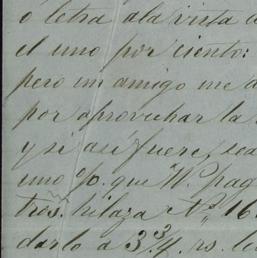 ó letra ala vista
el uno por ciento:
pero un amigo me
por aprovechar la
y si asi fuere, sea
uno p. que W. pag
tres. hilaza Nº 16
darlo a 3 3/4 rs. li